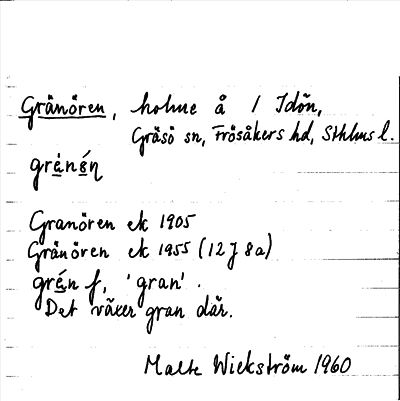 Gränören, holme å / Idön,
Gräsö sn, Frösåkers hd, Sthlms l.
grénén
Granören ek 1905
Gränören ek 1955 (12J 8a)
grén f, 'gran'.
Det växer gran där.
Malte Wickström 1960